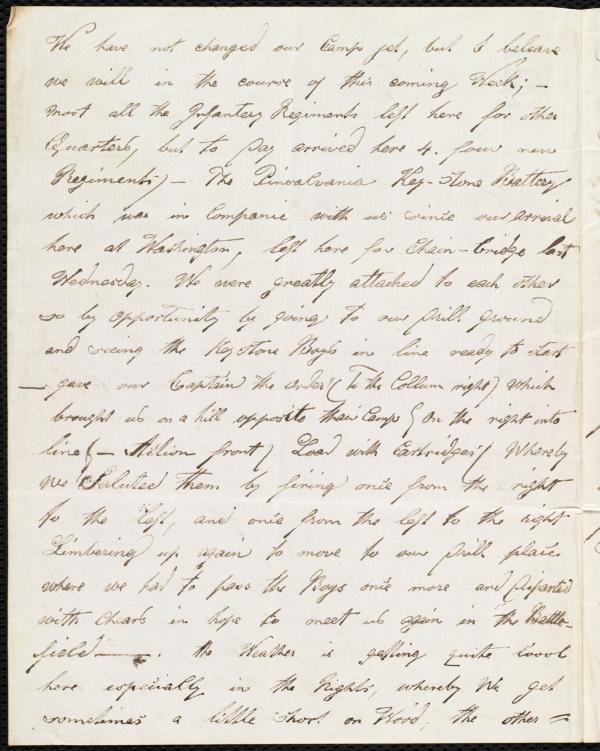 We have not changed our Camp yet, but I beleave
we will in the course of this coming Week; –
most all the Infantery Regiments left here for other
Quarters, but to Day arrived here 4. four new
Regiments) – The Pinsalvania Key-Stone Battery
which was in Companie with us since our arrival
here at Washington, left here for Chain-bridge last
Wednesday. We were greatly attached to each other
so by opportunity by going to our Drill ground
and seeing the Keystone Boys in line ready to start
– gave our Captain the order (To the Collum right) which
brought us on a hill opposite their Camp (On the right into
line) – Action front) Load with Cartridges) Whereby
we Saluted them by firing once from the right
to the left, and once from the left to the right
Limbering up again to move to our Drill place
where we had to pass the Boys once more and Departed
with Chears in hope to meet us again in the Battle-
field —. the Weather is getting quite cool
here especially in the Nights, whereby We get
sometimes a little short on Wood, the other =